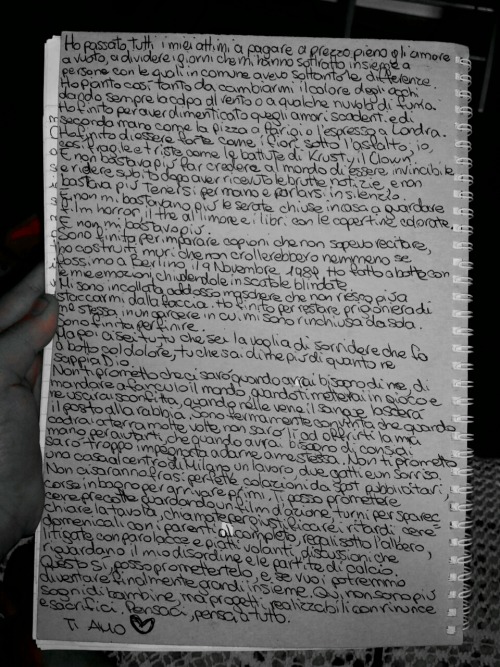 Ho passato tutti i miei attimi a pagare a prezzo pieno gli amore
a vuoto, a dividere giorni che mi hanno soffiato insieme a
persone con le quali in comune avevo soltanto le differenze.
Ho pianto così tanto da cambiarmi il colore degli occhi
dando sempre la colpa al vento o a qualche nuvola di fumo.
Ho finito per aver dimenticato quegli amori scadenti e di
seconda mano come la pizza a Parigi o l'espresso a Londra.
Ho finito di essere forte come i fiori sotto l'asfalto, io,
così fragile e triste come le battute di Krusty il Clown.
E non bastava più far credere al mondo di essere invincibile
e ridere subito dopo aver ricevuto le brutte notizie, e non
bastava più tenersi per mano e parlarsi in silenzio.
E non mi bastavano più le serate chiuse in casa a guardare
film horror, il the al limone e i libri con le copertine colorate.
E non mi bastavo più.
Sono finita per imparare copioni che non sapevo recitare,
ho costruito muri che non crollerebbero nemmeno se
fossimo a Berlino il 9 Novembre 1989. Ho fatto a botte con
le mie emozioni, chiudendole in scatole blindate.
Mi sono incollata addosso maschere che non riesco più a
staccarmi dalla faccia. Ho finito per restare prigioniera di
me stessa, in un in cui mi sono rinchiusa da sola.
Sono finita per finire.
Ma poi ci sei tu che sei la voglia di sorridere che fa
a botte col dolore, tu che sai di me più di quanto ne
sappia Dio.
Non ti prometto che ci sarò quando avrai bisogno di me, di
mandare a fanculo il mondo, quando ti metterai in gioco e
ne uscirai sconfitta, quando nelle vene il sangue lascerà
il posto alla rabbia. Sono fermamente convinta che quando
cadrai a terra molte volte non sarò lì ad offrirti la mia
mano per aiutarti, che quando avrai bisogno di consigli
sarò troppo impegnata a darne a me stessa. Non ti prometto
una casa al centro di Milano, un lavoro due gatti e un sorriso.
Non ci saranno frasi perfette, colazioni da spot pubblicitari,
corse in bagno per arrivare primi. Ti posso promettere
cene precotte guardando un film d'azione, turni per sparec-
chiare la tavola, chiamate per giustificare i ritardi, cene
domenicali con i parenti al completo, regali sotto l'albero,
litigate con parolacce e piatti volanti, discussioni che
riguardano il mio disordine e le partite di calcio.
Questo sì, posso promettertelo, e se vuoi potremmo
diventare finalmente grandi insieme. Qui, non sono più
sogni di bambine, ma progetti realizzabili con rinunce
e sacrifici. Pensaci, pensa a tutto.
Ti Amo